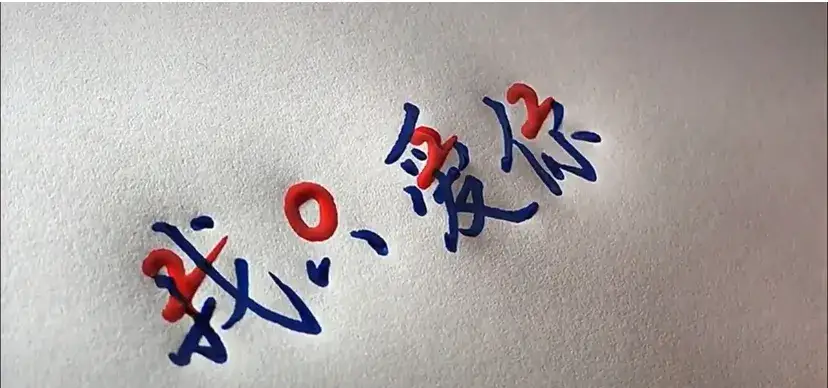 我只爱你